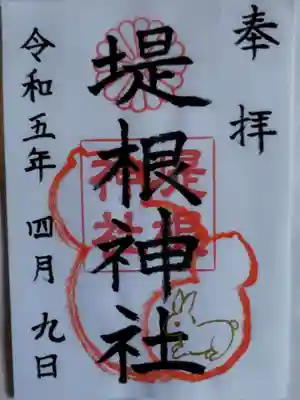 奉拝
堤根神社
堤根
神社
令和五年 四月 九日